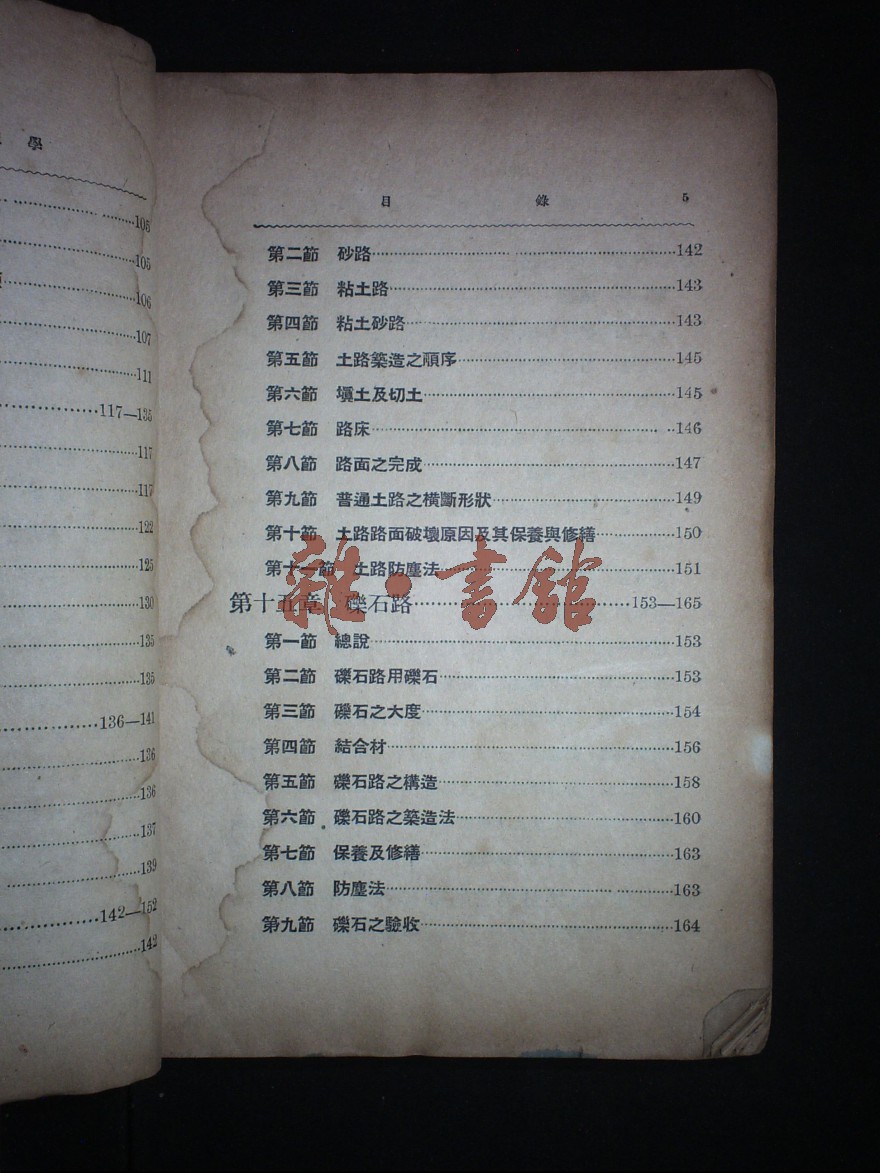 學
105
105
106
107
111
117—135
117
117
122
125
130
135
135
136—141
136
136
137
139
142—152
142
目錄 5
第二節 砂路 142
第三節 粘土路 143
第四節 粘土砂路 143
第五節 土路築造之順序 145
第六節 塡土及切土 145
第七節 路床 146
第八節 路面之完成 147
第九節 普通土路之橫斷形狀 149
第十節 土路路面破壞原因及其保養與修繕 150
第十一節 土路防塵法 151
第十五章 礫石路 153—165
第一節 總說 153
第二節 礫石路用礫石 153
第三節 礫石之大度 154
第四節 結合材 156
第五節 礫石路之構造 158
第六節 礫石路之築造法 160
第七節 保養及修繕 163
第八節 防塵法 163
第九節 礫石之驗收 164
雜·書館